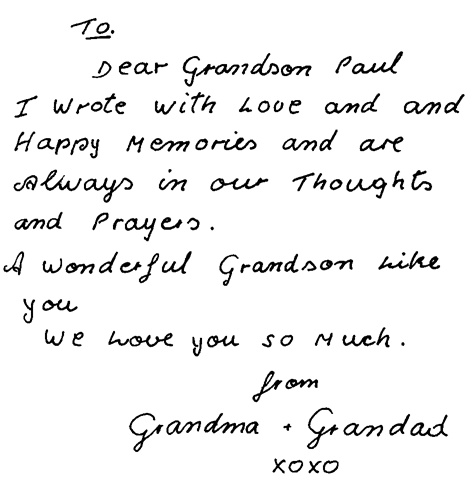 To.
Dear Grandson Paul
I wrote with Love and and
Happy Memories and are
Always in our Thoughts
and Prayers.
A wonderful Grandson Like
you
We Love you so Much.
from
Grandma + Grandad
xoxo